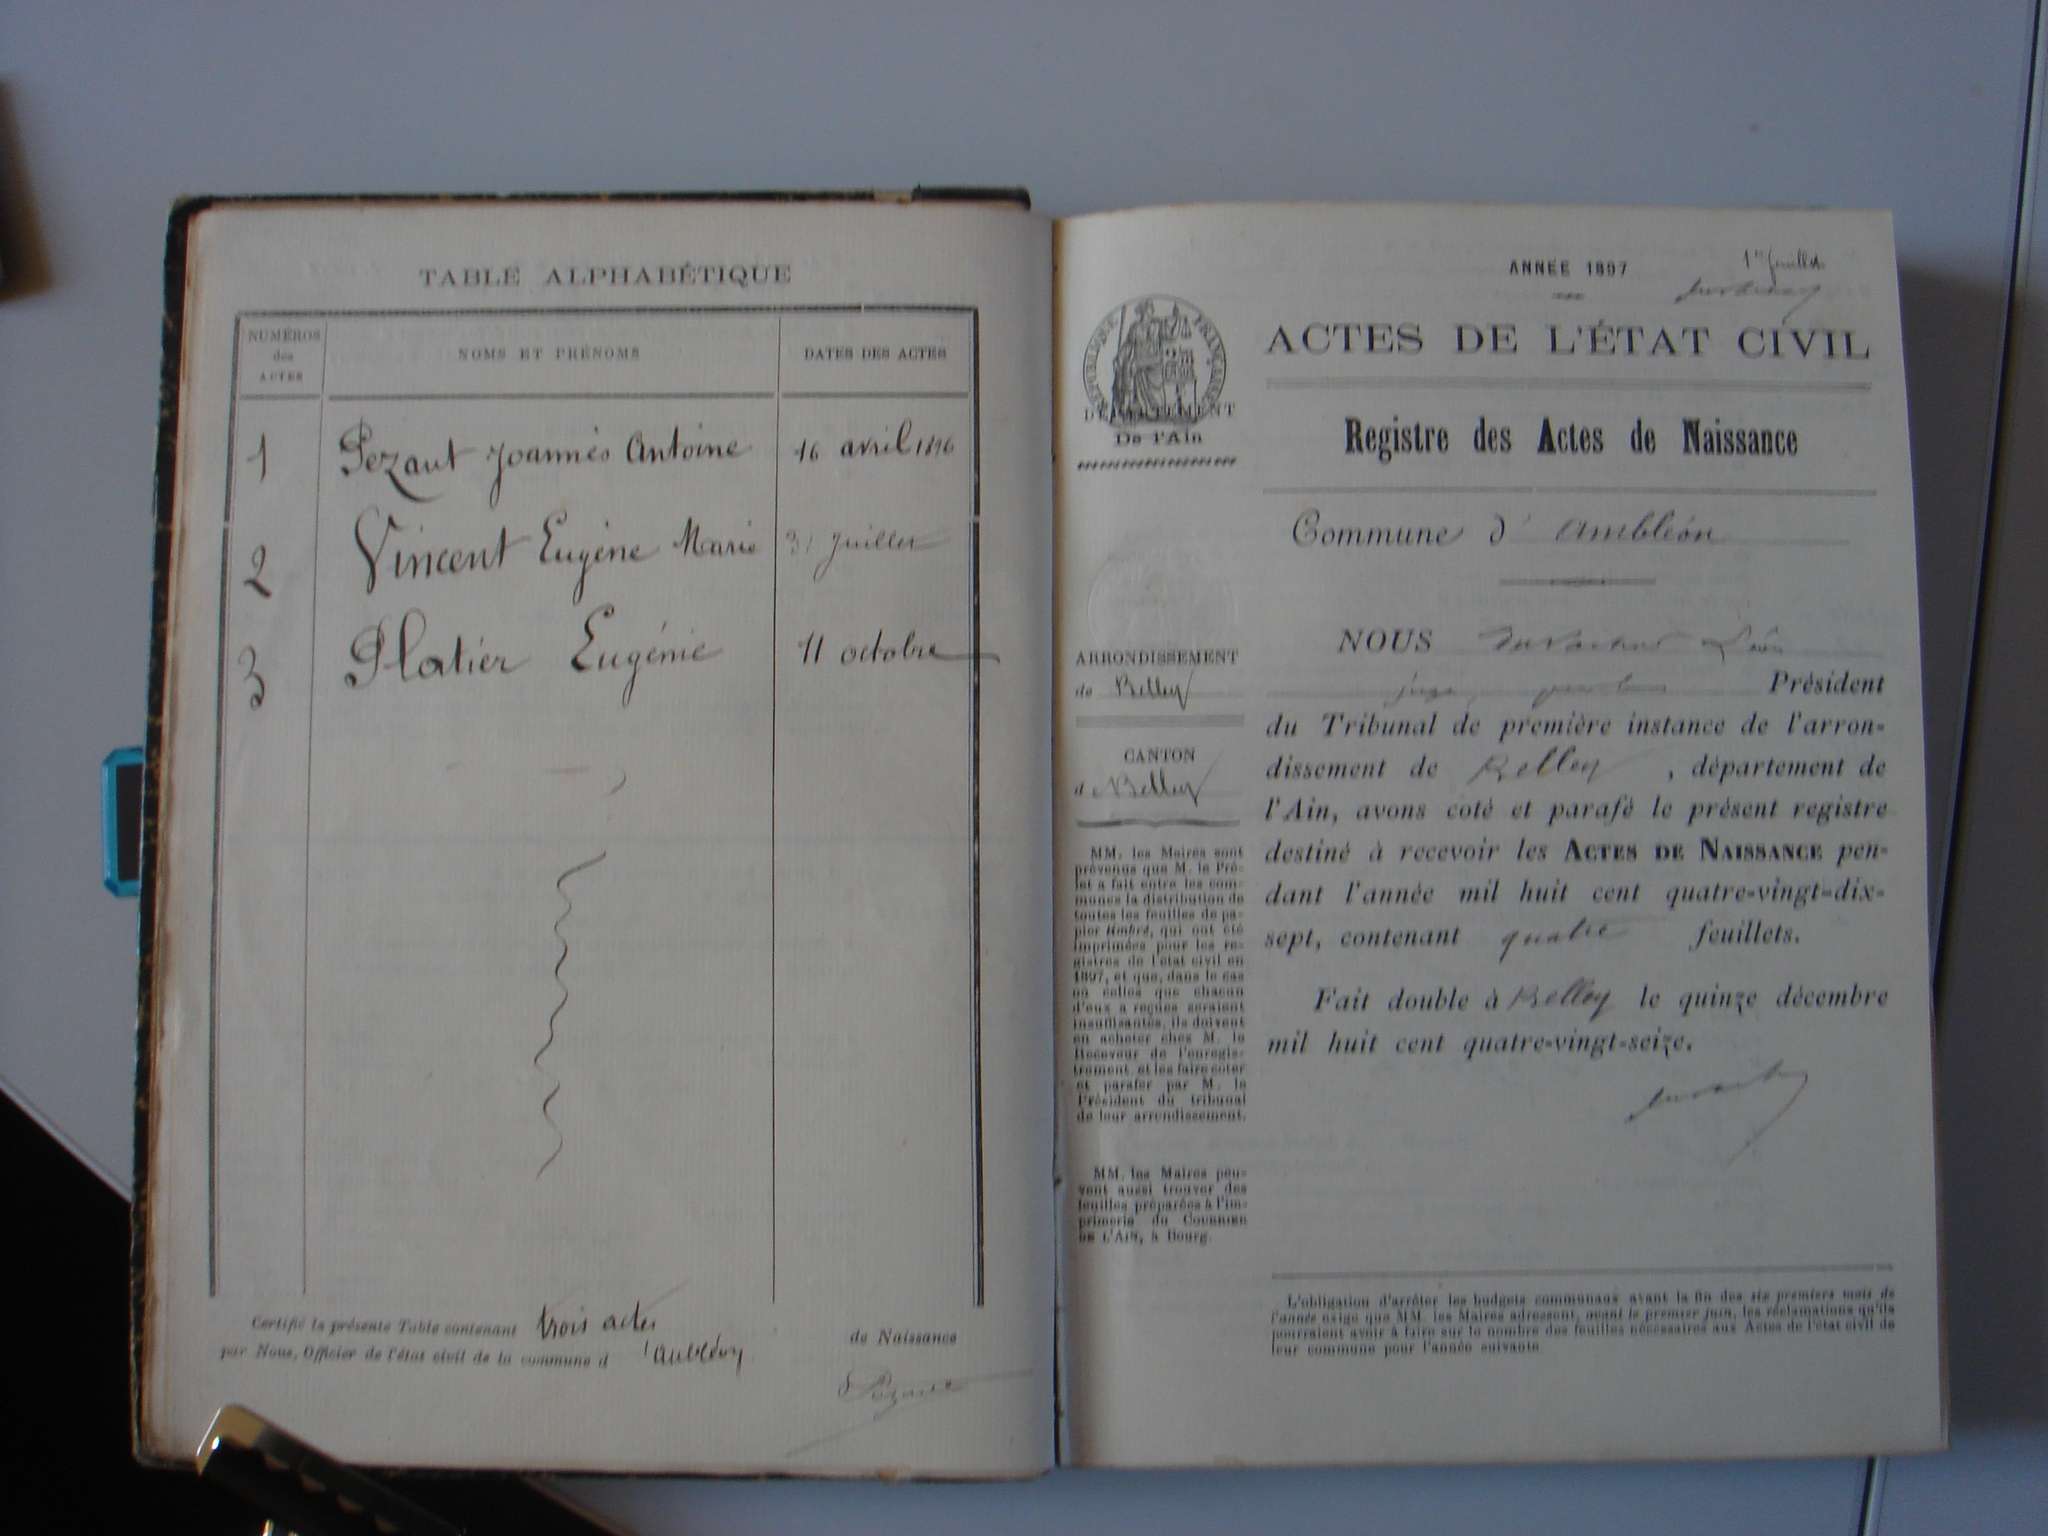 TABLE ALPHABÉTIQUE
NUMÉROS
des
ACTES
NOMS ET PRÉNOMS
DATES DES ACTES
1 Pezaut Joannès Antoine 16 avril 1896
2 Vincent Eugène Marie 31 Juillet
3 Platier Eugénie 11 octobre
Certifié la présente Table contenant trois actes de Naissance
par Nous, Officier de l'état civil de la commune d'Ambléon
ANNÉE 1897
1er feuillet
RÉPUBLIQUE FRANÇAISE
ACTES DE L'ÉTAT CIVIL
DÉPARTEMENT
De l'Ain
Registre des Actes de Naissance
Commune d'Ambléon
ARRONDISSEMENT
de Belley
CANTON
de Belley
MM. les Maires sont
prévenus que M. le Pré-
fet a fait entre les com-
munes la distribution de
toutes les feuilles de pa-
pier timbré, qui ont été
imprimées pour les re-
gistres de l'état civil en
1897, et que, dans le cas
où celles que chacun
d'eux a reçues seraient
insuffisantes, ils doivent
en acheter chez M. le
Receveur de l'enregis-
trement, et les faire coter
et parafer par M. le
Président du tribunal
de leur arrondissement.
MM. les Maires peu-
vent aussi trouver des
feuilles préparées à l'im-
primerie du COURRIER
DE L'AIN, à Bourg.
NOUS
juge Président
du Tribunal de première instance de l'arron-
dissement de Belley, département de
l'Ain, avons coté et parafé le présent registre
destiné à recevoir les ACTES DE NAISSANCE pen-
dant l'année mil huit cent quatre-vingt-dix-
sept, contenant quatre feuillets.
Fait double à Belley le quinze décembre
mil huit cent quatre-vingt-seize.
L'obligation d'arrêter les budgets communaux avant la fin des six premiers mois de
l'année exige que MM. les Maires adressent, avant le premier juin, les réclamations qu'ils
pourraient avoir à faire sur le nombre des feuilles nécessaires aux Actes de l'état civil de
leur commune pour l'année suivante.